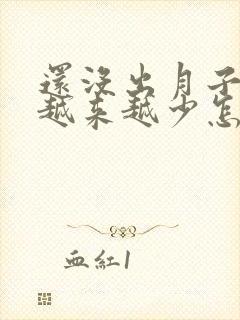 還沒出月子
越來越少怎
血紅1